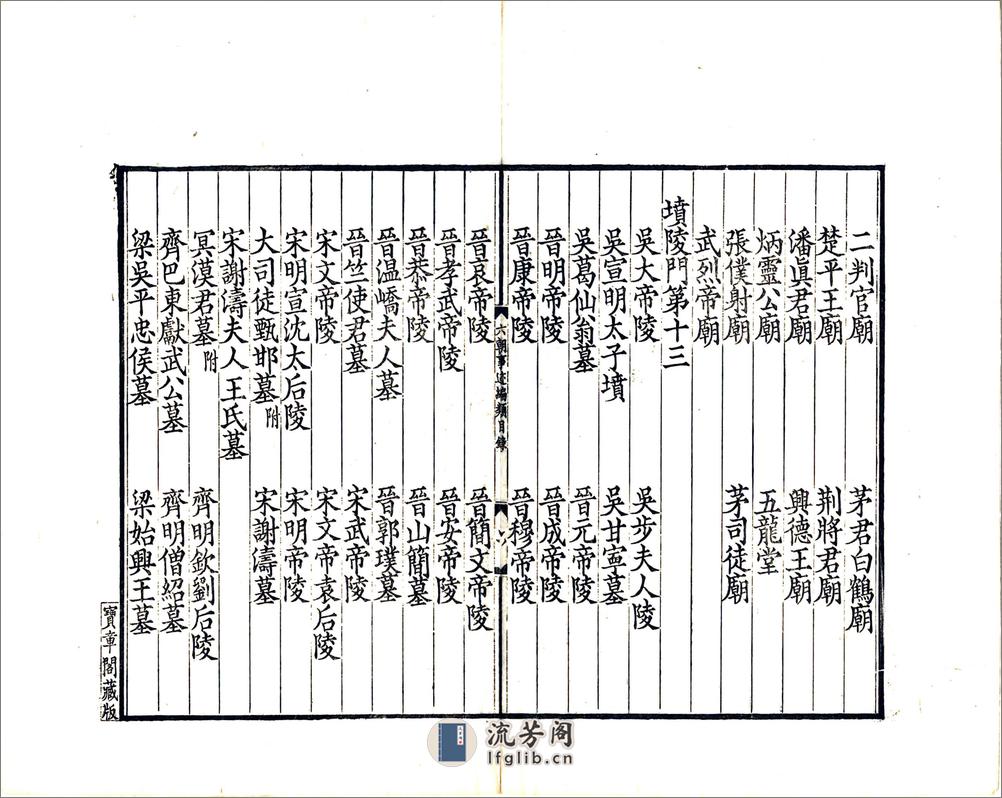 二判官廟　茅君白鶴廟
楚平王廟　荆將君廟
潘眞君廟　興德王廟
炳靈公廟　五龍堂
張僕射廟　茅司徒廟
武烈帝廟
墳陵門第十三
吳大帝陵　吳步夫人陵
吳宣明太子墳　吳甘寧墓
吳葛仙翁墓　晉元帝陵
晉明帝陵　晉成帝陵
晉康帝陵　晉穆帝陵
六朝事迹編類目錄　六
晉哀帝陵　晉簡文帝陵
晉孝武帝陵　晉安帝陵
晉恭帝陵　晉山簡墓
晉温嶠夫人墓　晉郭璞墓
晉竺使君墓　宋武帝陵
宋文帝陵　宋文帝袁后陵
宋明宣沈太后陵　宋明帝陵
大司徒甄邯墓附　宋謝濤墓
宋謝濤夫人王氏墓
冥漠君墓附　齊明欽劉后陵
齊巴東獻武公墓　齊明僧紹墓
梁吳平忠侯墓　梁始興王墓
寶章閣藏版
流芳阁
lfglib.cn